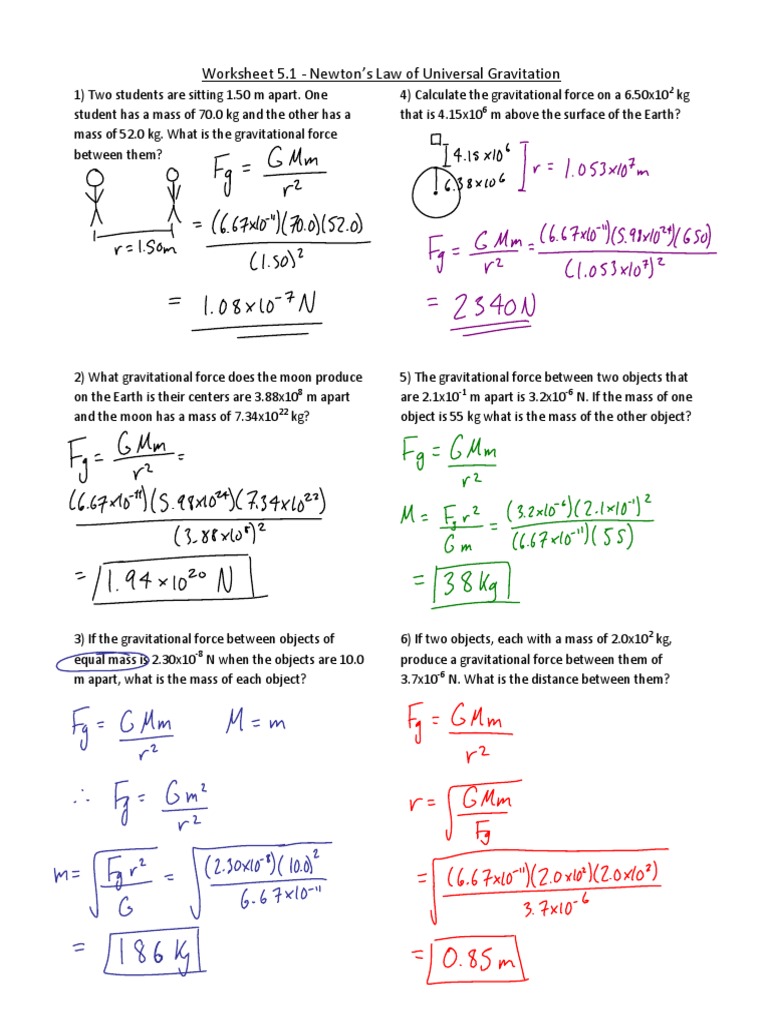 Worksheet 5.1 - Newton's Law of Universal Gravitation
1) Two students are sitting 1.50 m apart. One
student has a mass of 70.0 kg and the other has a
mass of 52.0 kg. What is the gravitational force
between them?
Fg = GMm / r²
r = 1.50m
= (6.67x10⁻¹¹)(70.0)(52.0) / (1.50)²
= 1.08x10⁻⁷ N
2) What gravitational force does the moon produce
on the Earth is their centers are 3.88x10⁸ m apart
and the moon has a mass of 7.34x10²² kg?
Fg = GMm / r² =
(6.67x10⁻¹¹)(5.98x10²⁴)(7.34x10²²) / (3.88x10⁸)²
= 1.94x10²⁰ N
3) If the gravitational force between objects of
equal mass is 2.30x10⁻⁸ N when the objects are 10.0
m apart, what is the mass of each object?
Fg = GMm / r² M = m
∴ Fg = Gm² / r²
m = √(Fg r² / G) = √((2.30x10⁻⁸)(10.0)² / 6.67x10⁻¹¹)
= 186 Kg
4) Calculate the gravitational force on a 6.50x10² kg
that is 4.15x10⁶ m above the surface of the Earth?
4.15x10⁶
6.38x10⁶
r = 1.053x10⁷ m
Fg = GMm / r² = (6.67x10⁻¹¹)(5.98x10²⁴)(650) / (1.053x10⁷)²
= 2340N
5) The gravitational force between two objects that
are 2.1x10⁻¹ m apart is 3.2x10⁻⁶ N. If the mass of one
object is 55 kg what is the mass of the other object?
Fg = GMm / r²
M = Fg r² / Gm = (3.2x10⁻⁶)(2.1x10⁻¹)² / (6.67x10⁻¹¹)(55)
= 38 Kg
6) If two objects, each with a mass of 2.0x10² kg,
produce a gravitational force between them of
3.7x10⁻⁶ N. What is the distance between them?
Fg = GMm / r²
r = √(GMm / Fg)
= √((6.67x10⁻¹¹)(2.0x10²)(2.0x10²) / 3.7x10⁻⁶)
= 0.85 m